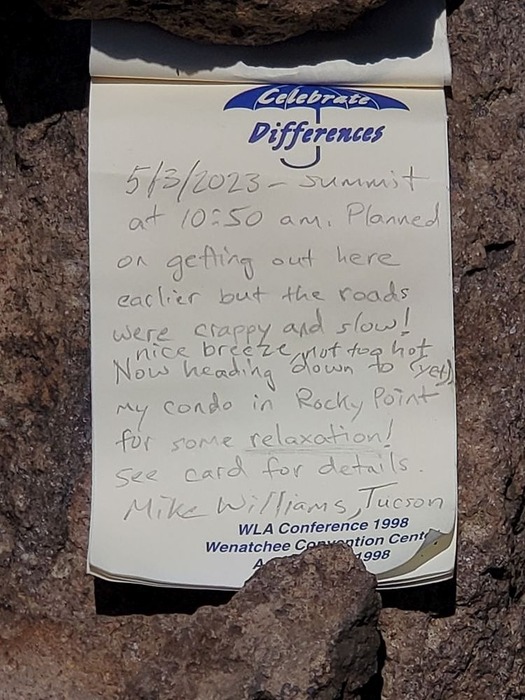 Celebrate
Differences
5/3/2023 - summit
at 10:50 am. Planned
on getting out here
earlier but the roads
were crappy and slow!
nice breeze, not too hot
Now heading down to (yet)
my condo in Rocky Point
for some relaxation!
see card for details.
Mike Williams, Tucson
WLA Conference 1998
Wenatchee Convention
1998